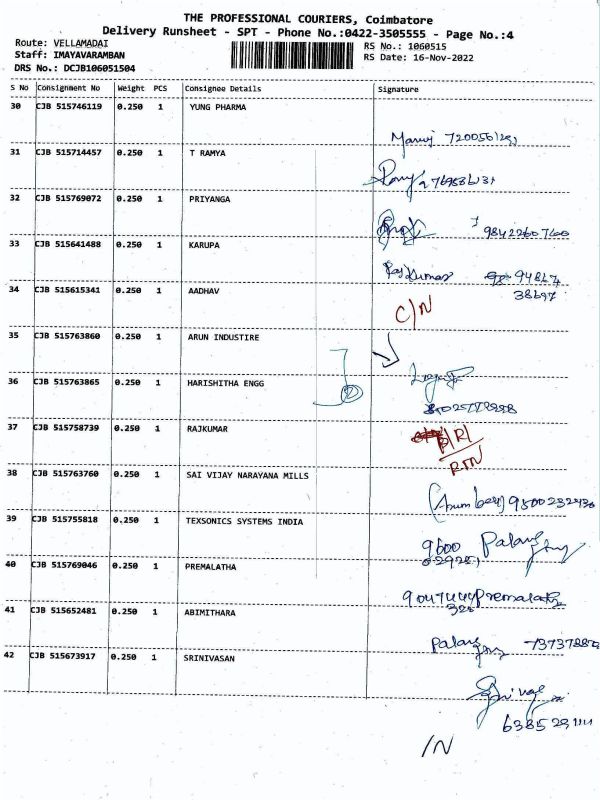 THE PROFESSIONAL COURIERS, Coimbatore
Delivery Runsheet - SPT - Phone No.:0422-3505555 - Page No.:4
Route: VELLAMADAI
RS No.: 1060515
Staff: IMAYAVARAMBAN
RS Date: 16-Nov-2022
DRS No.: DCJB106051504
S No Consignment No Weight PCS Consignee Details Signature
30 CJB 515746119 0.250 1 YUNG PHARMA
31 CJB 515714457 0.250 1 T RAMYA
32 CJB 515769072 0.250 1 PRIYANGA
9842260760
33 CJB 515641488 0.250 1 KARUPA
Rajkumar 94867
38697
34 CJB 515615341 0.250 1 AADHAV
C/N
35 CJB 515763860 0.250 1 ARUN INDUSTIRE
36 CJB 515763865 0.250 1 HARISHITHA ENGG
37 CJB 515758739 0.250 1 RAJKUMAR
RTN
38 CJB 515763760 0.250 1 SAI VIJAY NARAYANA MILLS
39 CJB 515755818 0.250 1 TEXSONICS SYSTEMS INDIA
9600 Palani
40 CJB 515769046 0.250 1 PREMALATHA
Premalatha
41 CJB 515652481 0.250 1 ABIMITHARA
Palani
42 CJB 515673917 0.250 1 SRINIVASAN
/N